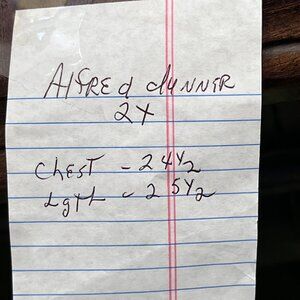 Alfred dunner
2X
Chest - 24 1/2
Lgth - 25 1/2